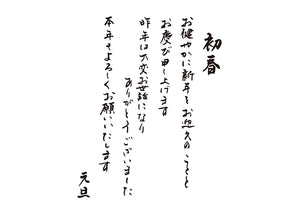 初春
お健やかに新年をお迎えのことと
お慶び申し上げます
昨年は大変お世話になり
ありがとうございました
本年もよろしくお願いいたします
元旦